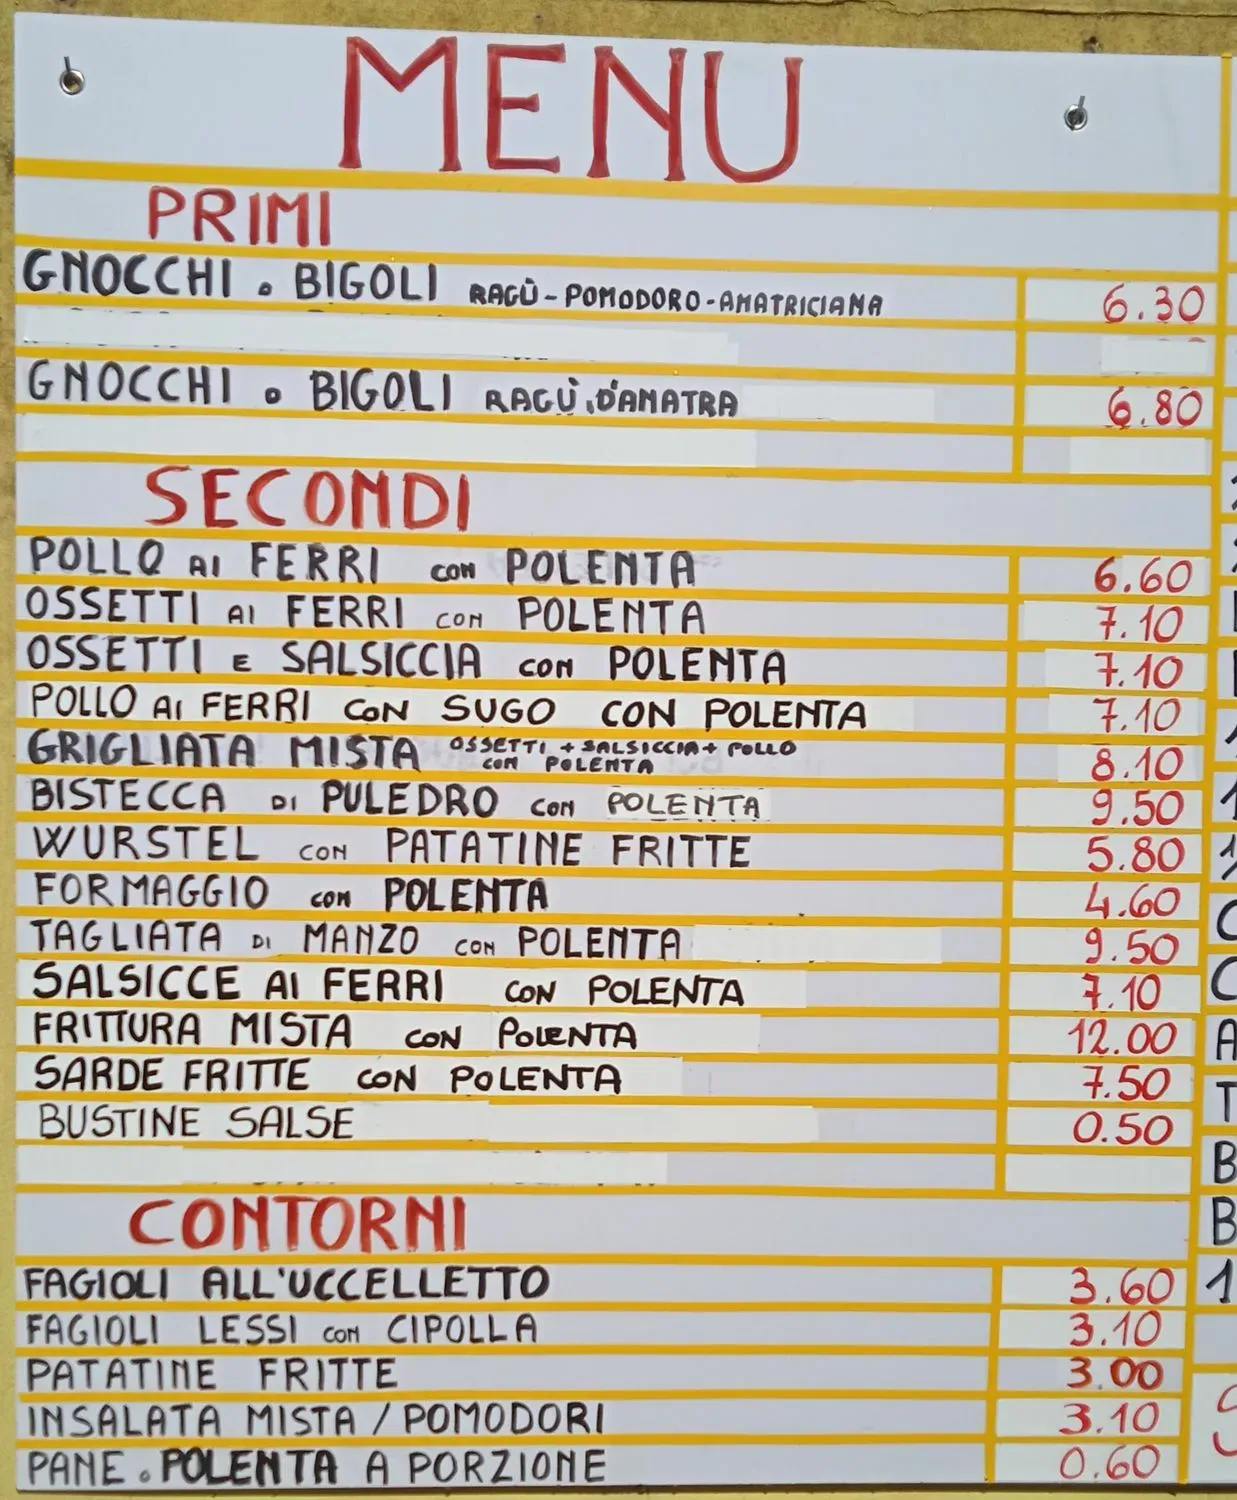 MENU
PRIMI
GNOCCHI o BIGOLI RAGÙ-POMODORO-AMATRICIANA 6.30
GNOCCHI o BIGOLI RAGÙ D'ANATRA 6.80
SECONDI
POLLO AI FERRI CON POLENTA 6.60
OSSETTI AI FERRI CON POLENTA 7.10
OSSETTI E SALSICCIA CON POLENTA 7.10
POLLO AI FERRI CON SUGO CON POLENTA 7.10
GRIGLIATA MISTA OSSETTI + SALSICCIA + POLLO 8.10
CON POLENTA
BISTECCA DI PULEDRO CON POLENTA 9.50
WURSTEL CON PATATINE FRITTE 5.80
FORMAGGIO CON POLENTA 4.60
TAGLIATA DI MANZO CON POLENTA 9.50
SALSICCE AI FERRI CON POLENTA 7.10
FRITTURA MISTA CON POLENTA 12.00
SARDE FRITTE CON POLENTA 7.50
BUSTINE SALSE 0.50
CONTORNI
FAGIOLI ALL'UCCELLETTO 3.60
FAGIOLI LESSI CON CIPOLLA 3.10
PATATINE FRITTE 3.00
INSALATA MISTA / POMODORI 3.10
PANE o POLENTA A PORZIONE 0.60